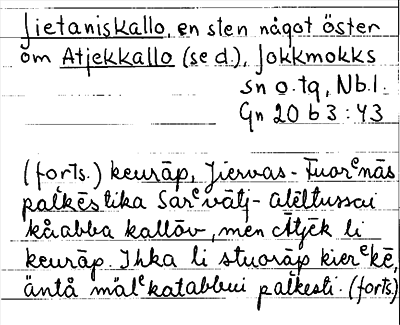 Jietaniskallo, en sten något öster
om Atjekkallo (se d.), Jokkmokks
sn o. tg, Nb.l.
Gn 20 b 3 : 43
(forts.) keurāp, Jiervas-Tuorᵉnās
palkēstika Sarᵉvātj- alēltussai
kåabba kallōv, men Ātjēk li
keurāp. Ihka li stuorāp kierᵉkē,
äntå mälᵉkatabbui palkesti. (forts)